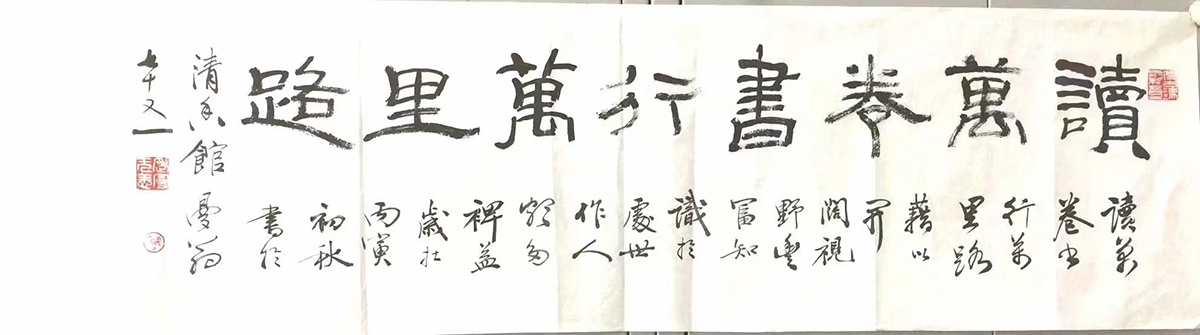 讀萬卷書行萬里路
讀萬
卷書
行萬
里路
藉以
開
闊視
野豐
富知
識於
處世
作人
頗多
裨益
歲在
丙寅
初秋
書於
清香館
七十又一